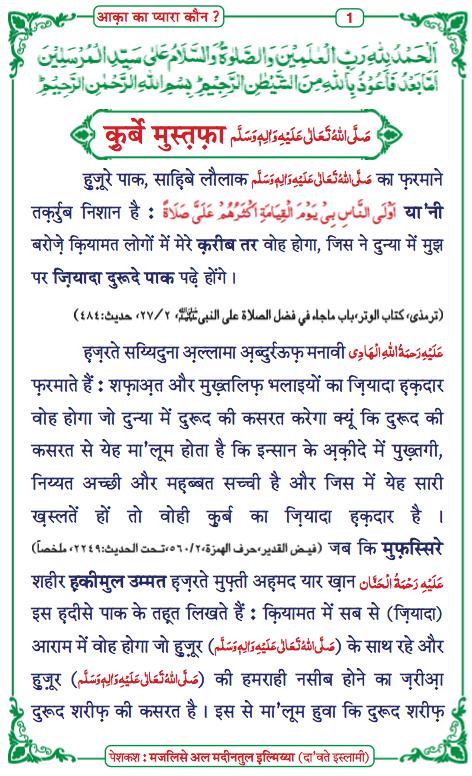 आक़ा का प्यारा कौन ?
1
اَلْحَمْدُ لِلّٰهِ رَبِّ الْعٰلَمِيْنَ وَالصَّلٰوةُ وَالسَّلَامُ عَلٰى سَيِّدِ الْمُرْسَلِيْنَ
اَمَّا بَعْدُ فَاَعُوْذُ بِاللّٰهِ مِنَ الشَّيْطٰنِ الرَّجِيْمِ ؕ بِسْمِ اللّٰهِ الرَّحْمٰنِ الرَّحِيْمِ ؕ
क़ुर्बे मुस्त़फ़ा صَلَّى اللهُ تَعَالٰى عَلَيْهِ وَاٰلِهٖ وَسَلَّم
हुज़ूरे पाक, साह़िबे लौलाक صَلَّى اللهُ تَعَالٰى عَلَيْهِ وَاٰلِهٖ وَسَلَّم का फ़रमाने
तक़र्रुब निशान है : اَوْلَى النَّاسِ بِيْ يَوْمَ الْقِيَامَةِ اَكْثَرُهُمْ عَلَيَّ صَلَاةً या'नी
बरोज़े क़ियामत लोगों में मेरे क़रीब तर वोह होगा, जिस ने दुन्या में मुझ
पर ज़ियादा दुरूदे पाक पढ़े होंगे।
(ترمذی، کتاب الوتر، باب ماجاء فی فضل الصلاة علی النبی ﷺ، ۲/ ۲۷، حدیث: ٤٨٤)
ह़ज़रते सय्यिदुना अ़ल्लामा अ़ब्दुर्रऊफ़ मनावी عَلَيْهِ رَحْمَةُ اللهِ الْهَادِي
फ़रमाते हैं : शफ़ाअ़त और मुख़्तलिफ़ भलाइयों का ज़ियादा ह़क़दार
वोह होगा जो दुन्या में दुरूद की कसरत करेगा क्यूं कि दुरूद की
कसरत से येह मा'लूम होता है कि इन्सान के अ़क़ीदे में पुख़्तगी,
निय्यत अच्छी और मह़ब्बत सच्ची है और जिस में येह सारी
ख़स्लतें हों तो वोही क़ुर्ब का ज़ियादा ह़क़दार है ।
(فيض القدير، حرف الهمزة، ٢/ ٥٦٠، تحت الحديث: ٢٢٤٩، ملخصاً) जब कि मुफ़स्सिरे
शहीर ह़कीमुल उम्मत ह़ज़रते मुफ़्ती अह़मद यार ख़ान عَلَيْهِ رَحْمَةُ الْحَنَّان
इस ह़दीसे पाक के तह़त लिखते हैं : क़ियामत में सब से (ज़ियादा)
आराम में वोह होगा जो हुज़ूर (صَلَّى اللهُ تَعَالٰى عَلَيْهِ وَاٰلِهٖ وَسَلَّم) के साथ रहे और
हुज़ूर (صَلَّى اللهُ تَعَالٰى عَلَيْهِ وَاٰلِهٖ وَسَلَّم) की हमराही नसीब होने का ज़रीआ़
दुरूद शरीफ़ की कसरत है। इस से मा'लूम हुवा कि दुरूद शरीफ़
पेशकश : मजलिसे अल मदीनतुल इल्मिय्या (दा'वते इस्लामी)